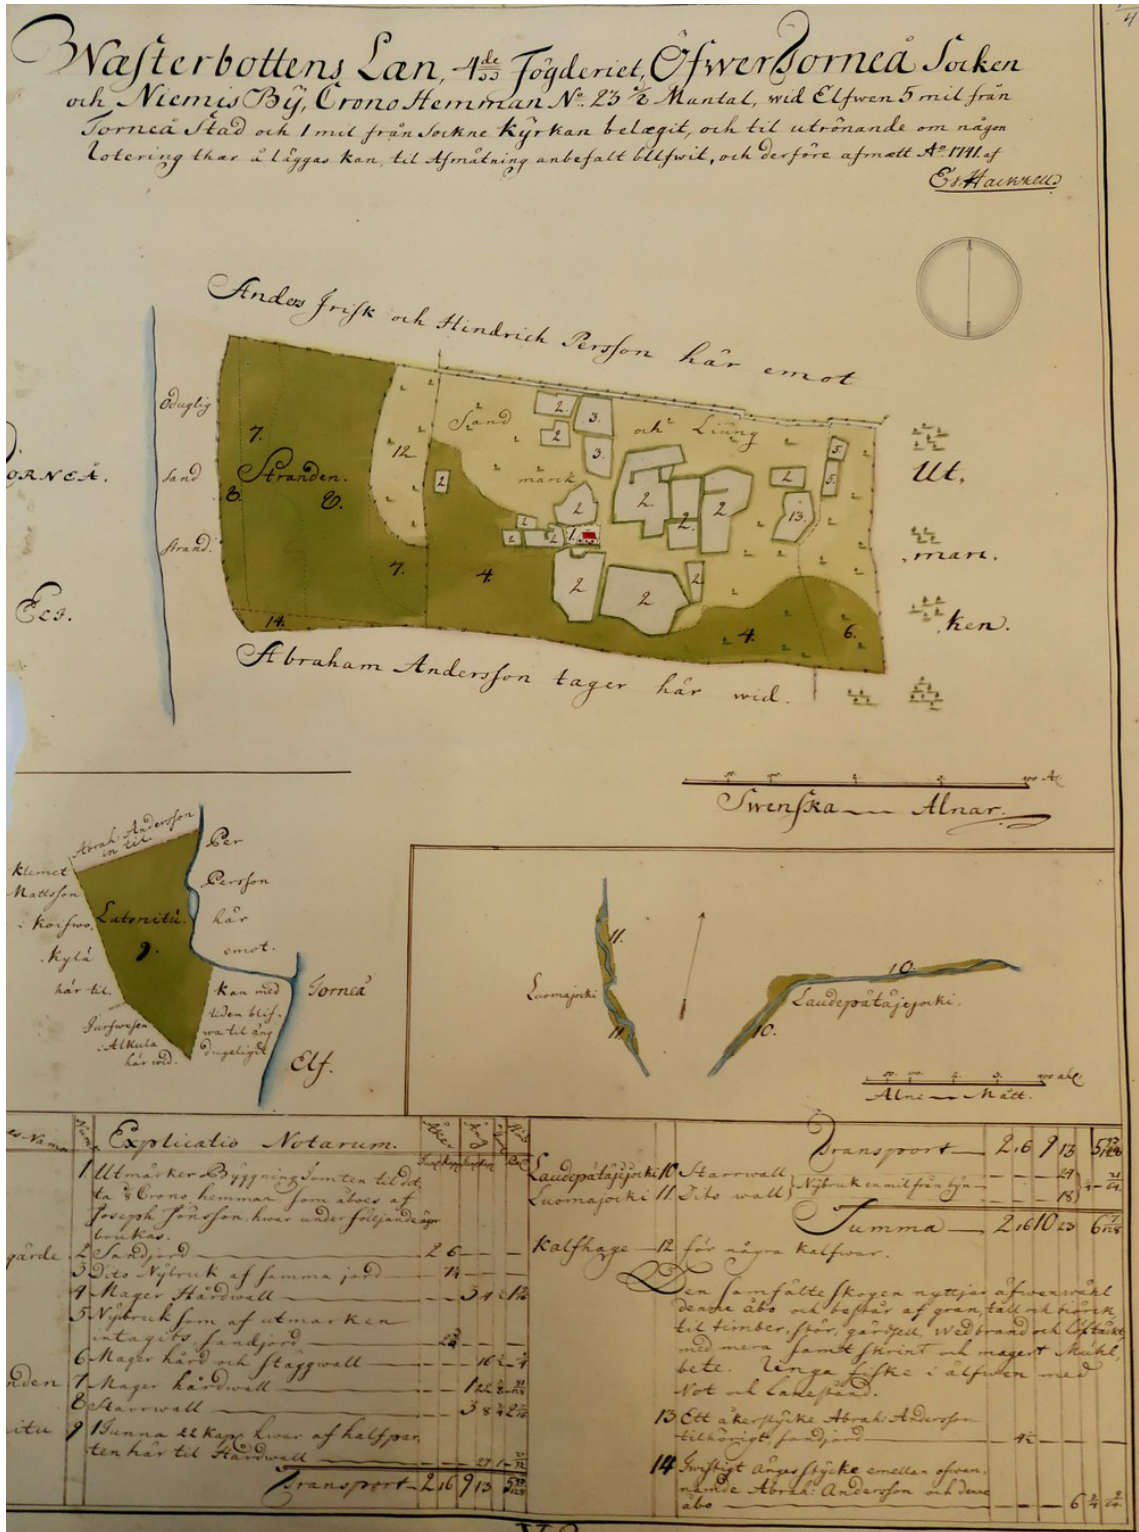 Wæsterbottens Læn, 4de Fögderiet, ÖfwerTorneå Socken
och Niemis Bÿ, Crono Hemman No. 23 ½ Mantal, wid Elfwen 5 mil från
Torneå Stad och 1 mil från Sockne Kÿrkan belægit, och til utrönande om någon
lotering thær å läggas kan, til Afmätning anbefalt blifwit, och derföre afmætt Ao. 1741. af
Anders Frisk och Hindrich Persson här emot
Oduglig
Sand
Strand.
ORNEÅ.
7.
8.
Stranden.
8.
7.
14.
12
Sand och Liung
marck
2.
2
3.
3.
2
2
2
2
1.
2
2.
2.
2
2
5.
5.
13.
2
2
2
4.
4.
6.
Ut.
marc.
ken.
Abraham Andersson tager här wid.
Swenska Alnar.
Abrah: Andersson
in til.
Klemet
Mattsson
i Koifwo.
Kylä
här til.
Per
Persson
här
emot.
9.
i Alkula
här wid.
kan med
tiden blif.
wa til äng
dugeligit
Torneå
Elf.
11.
Luomajocki
11.
10.
Laudepätäjejocki.
10.
Alne Mått.
Explicatio Notarum.
1 Utmärker Bÿggning Tomten til det
ta Crono hemman som åboes af
Joseph Jönsson, hwar under följande
brukas.
gärde 2 Sandjord 2 6
3 Dito Nÿbruk af samma jord
4 Mager Hårdwall
5 Nÿbruk som af utmarken
intagits, sandjord
6 Mager hård och stäggwall
nden 7 Mager hårdwall
8 Starrwall
itu 9 1 Tunna 22 kap hwar af halfpar,
ten här til Hårdwall
Transport 2 16 9 13
Transport 2 16 9 13
Laudepätäjejocki 10 Starrwall
Luomajocki 11. Dito wall
Nÿbruk en mil från bÿn
29
18
Summa 2 16 10 23
Kalfhage 12 för några kalfwar.
Den samfälte skogen nyttjar äfwenwähl
denne åbo och består af gran, tall och biörck
til timber, stör, gärdsell, wedbrand och löftäckt,
med mera samt skrint och magert Mühl,
bete. Ringa fiske i älfwen med
Not och
13 Ett åkerstÿcke Abrah: Andersson
tilhörigt, sandjord
14 Twistigt Ängesstÿcke emellan ofwan,
nämde Abrah: Andersson och denne
åbo